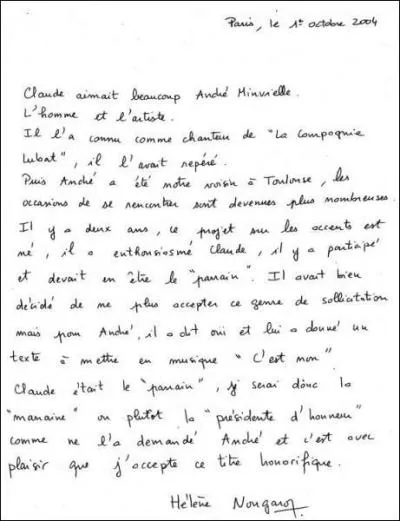 Paris, le 1er octobre 2004
Claude aimait beaucoup André Minvielle.
L'homme et l'artiste.
Il l'a connu comme chanteur de "La Compagnie
Lubat", il l'avait repéré.
Puis André a été notre voisin à Toulouse, les
occasions de se rencontrer sont devenues plus nombreuses.
Il y a deux ans, ce projet sur les accents est
né, il a enthousiasmé Claude, il y a participé
et devait en être le "parrain". Il avait bien
décidé de ne plus accepter ce genre de sollicitation
mais pour André, il a dit oui et lui a donné un
texte à mettre en musique "C'est mon"
Claude était le "parrain", je serai donc la
"marraine" ou plutôt la "présidente d'honneur"
comme me l'a demandé André et c'est avec
plaisir que j'accepte ce titre honorifique.
Hélène Nougaro